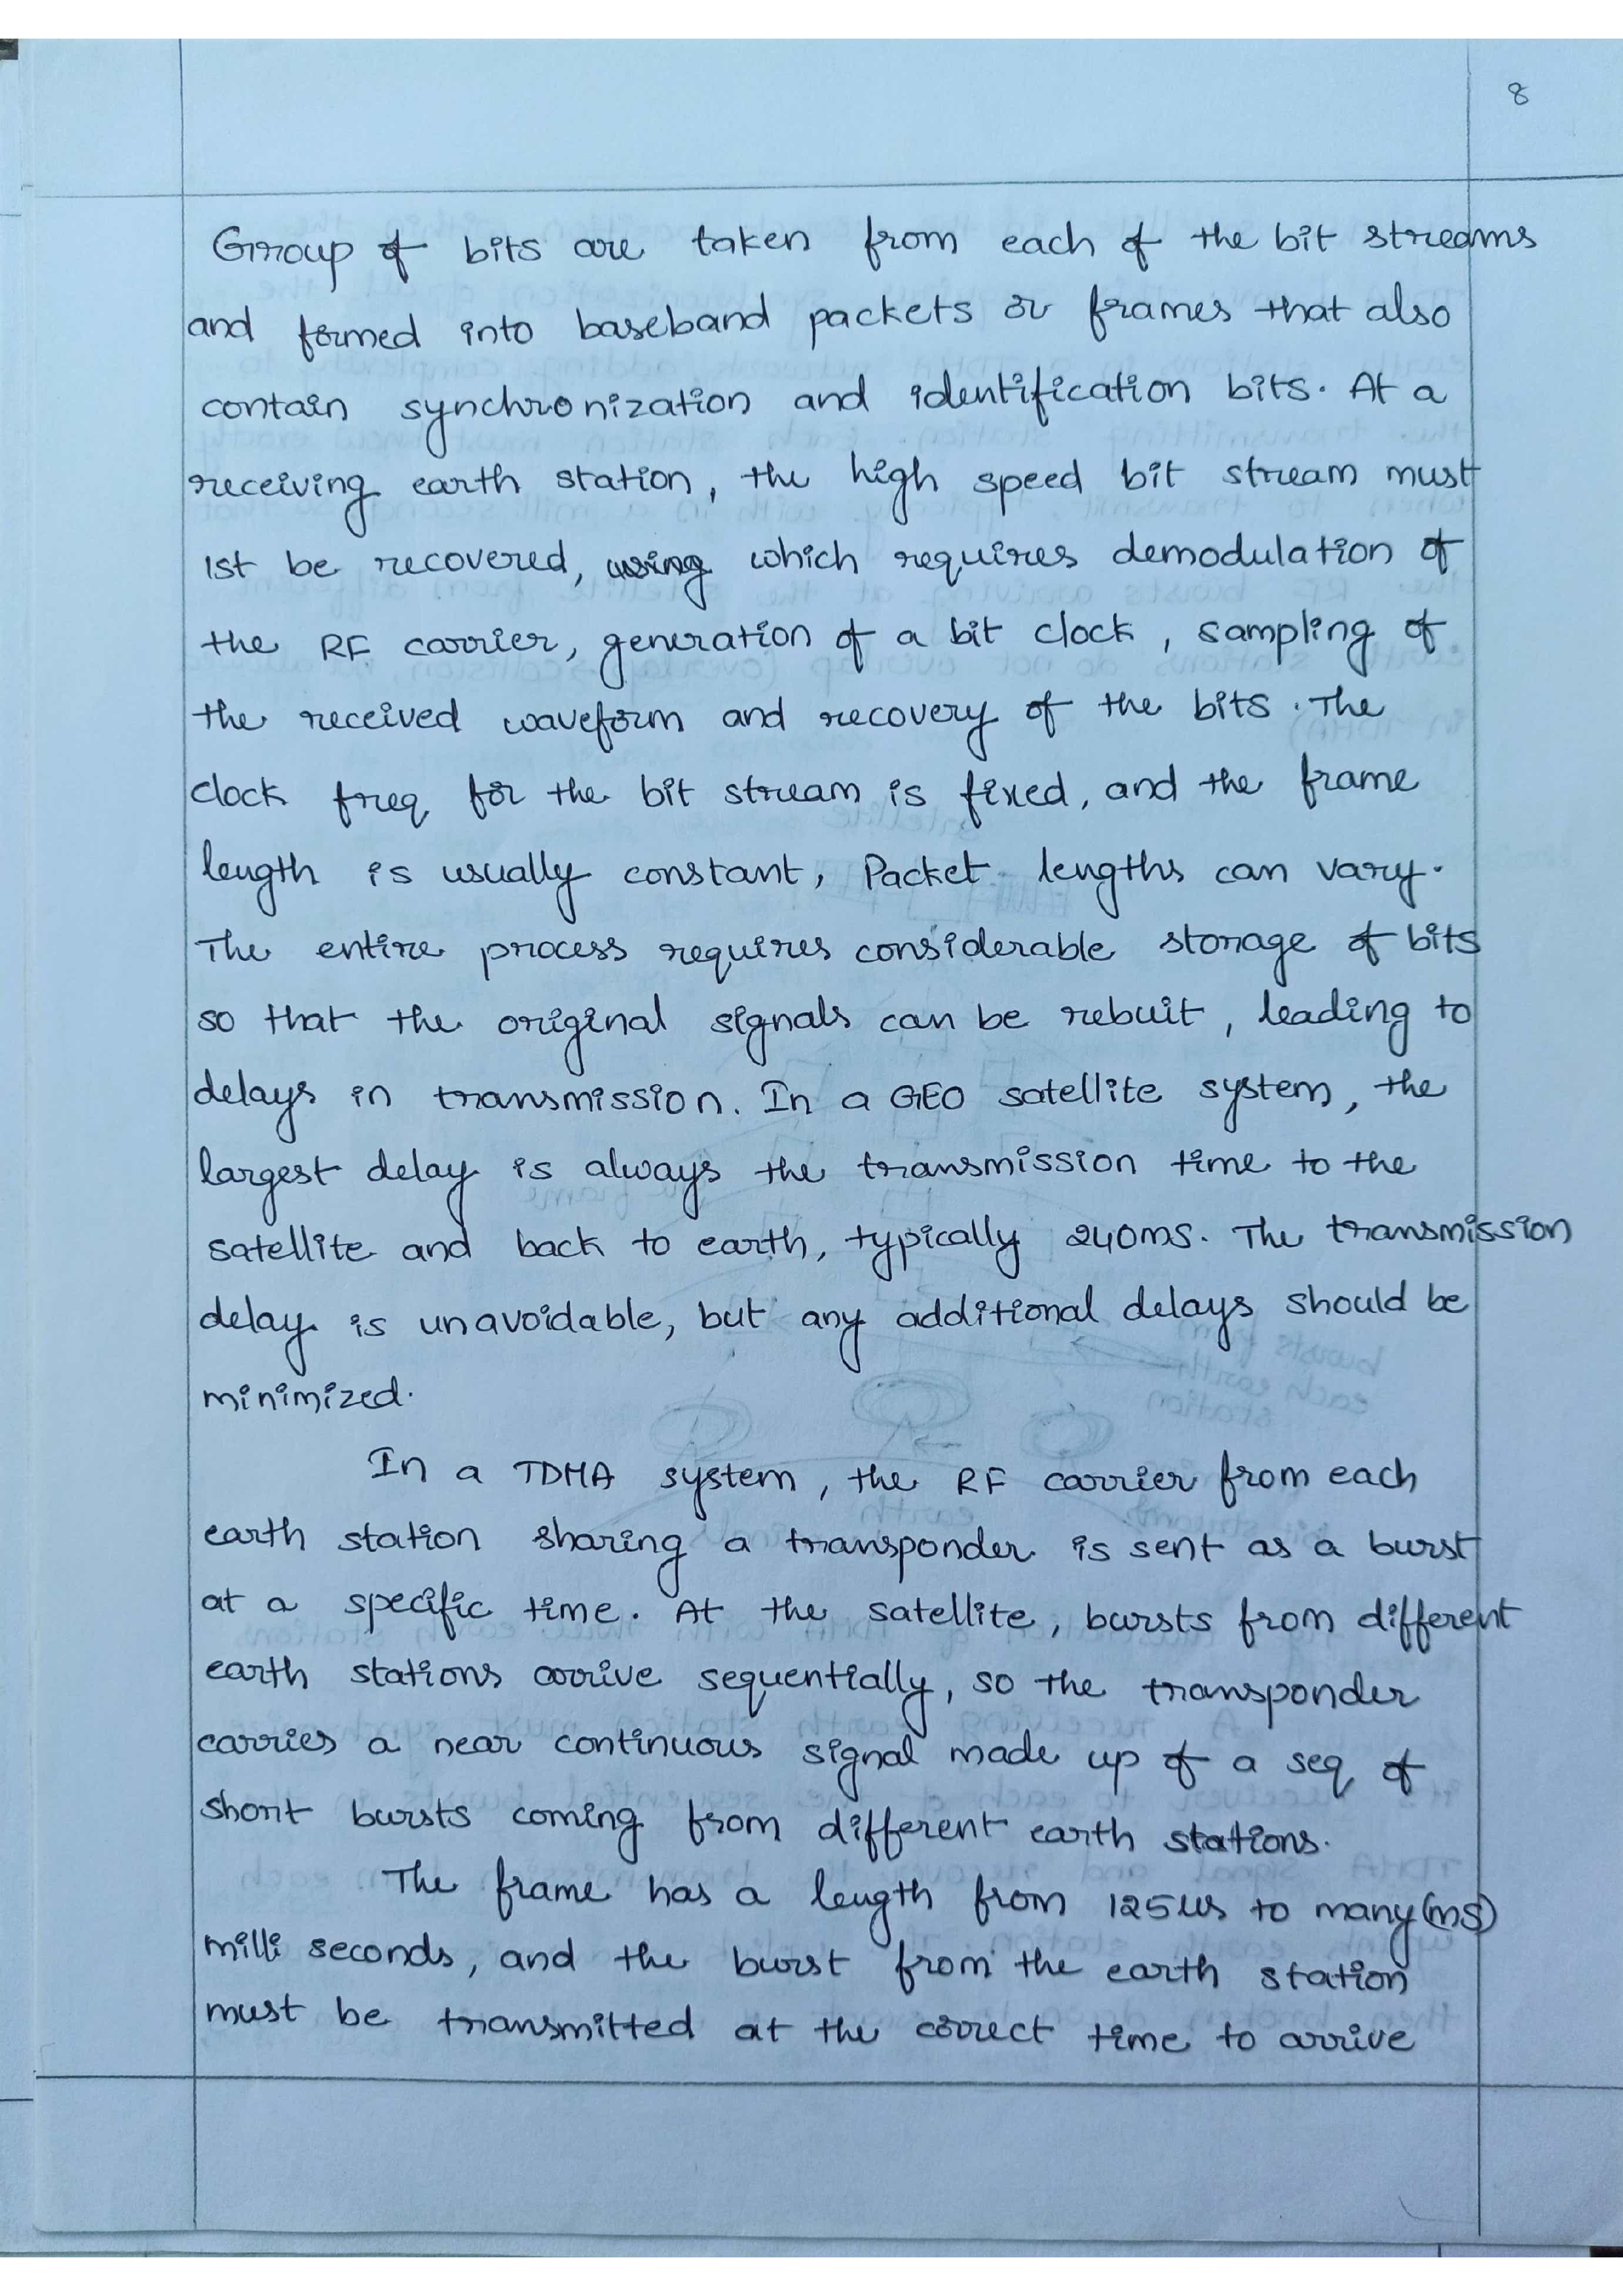 8
Group of bits are taken from each of the bit streams
and formed into baseband packets or frames that also
contain synchronization and identification bits. At a
receiving earth station, the high speed bit stream must
1st be recovered, using which requires demodulation of
the RF carrier, generation of a bit clock, sampling of
the received waveform and recovery of the bits. The
clock freq for the bit stream is fixed, and the frame
length is usually constant, Packet lengths can vary.
The entire process requires considerable storage of bits
so that the original signals can be rebuit, leading to
delays in transmission. In a GEO satellite system, the
largest delay is always the transmission time to the
satellite and back to earth, typically 240ms. The transmission
delay is unavoidable, but any additional delays should be
minimized.
In a TDMA system, the RF carrier from each
earth station sharing a transponder is sent as a burst
at a specific time. At the satellite, bursts from different
earth stations arrive sequentially, so the transponder
carries a near continuous signal made up of a seq of
short bursts coming from different earth stations.
The frame has a length from 125us to many (ms)
milli seconds, and the burst from the earth station
must be transmitted at the correct time to arrive